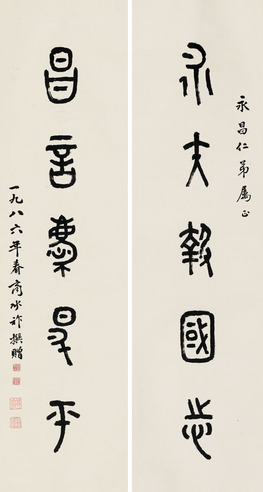 永昌仁弟屬正
永矢報國志
昌言慶昇平
一九八六年春商承祚撰贈